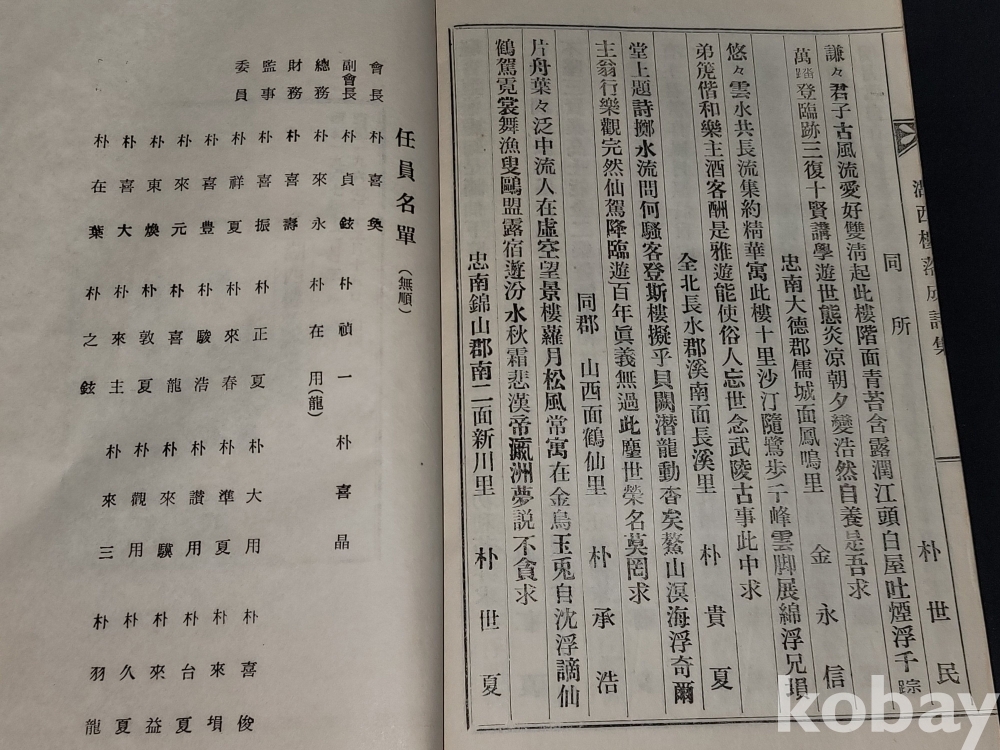 湖西樓落成詩集
同所 朴世民
謙々君子古風流愛好雙淸起此樓階面靑苔含露潤江頭白屋吐煙浮千踪
萬躋登臨跡三復十賢講學遊世態炎凉朝夕變浩然自養是吾求
忠南大德郡儒城面鳳鳴里 金永信
悠々雲水共長流集約精華寓此樓十里沙汀隨鷺步千峰雲脚展綿浮兄塤
弟篪偕和樂主酒客酬是雅遊能使俗人忘世念武陵古事此中求
全北長水郡溪南面長溪里 朴貴夏
堂上題詩擲水流問何騷客登斯樓擬乎貝闕潛龍動杳矣鰲山溟海浮奇爾
主翁行樂觀完然仙駕降臨遊百年眞義無過此塵世榮名莫罔求
同郡 山西面鶴仙里 朴承浩
片舟葉々泛中流人在虛空望景樓蘿月松風常寓在金烏玉兎自沈浮謫仙
鶴駕霓裳舞漁叟鷗盟露宿遊汾水秋霜悲漢帝瀛洲夢說不貪求
忠南錦山郡南二面新川里 朴世夏
任員名單(無順)
會長 朴喜奐
副會長 朴貞鉉 朴禎一 朴喜晶
總務 朴來永 朴在用(龍)
財務 朴喜壽
監事 朴喜振 朴正夏 朴大用 朴喜俊
委員 朴祥夏 朴來春 朴準夏 朴來塤
朴喜豊 朴駿浩 朴讚用 朴台夏
朴來元 朴喜龍 朴來驥 朴來益
朴東煥 朴敦夏 朴觀用 朴久夏
朴喜大 朴來主 朴來三 朴羽龍
朴在葉 朴之鉉
kobay